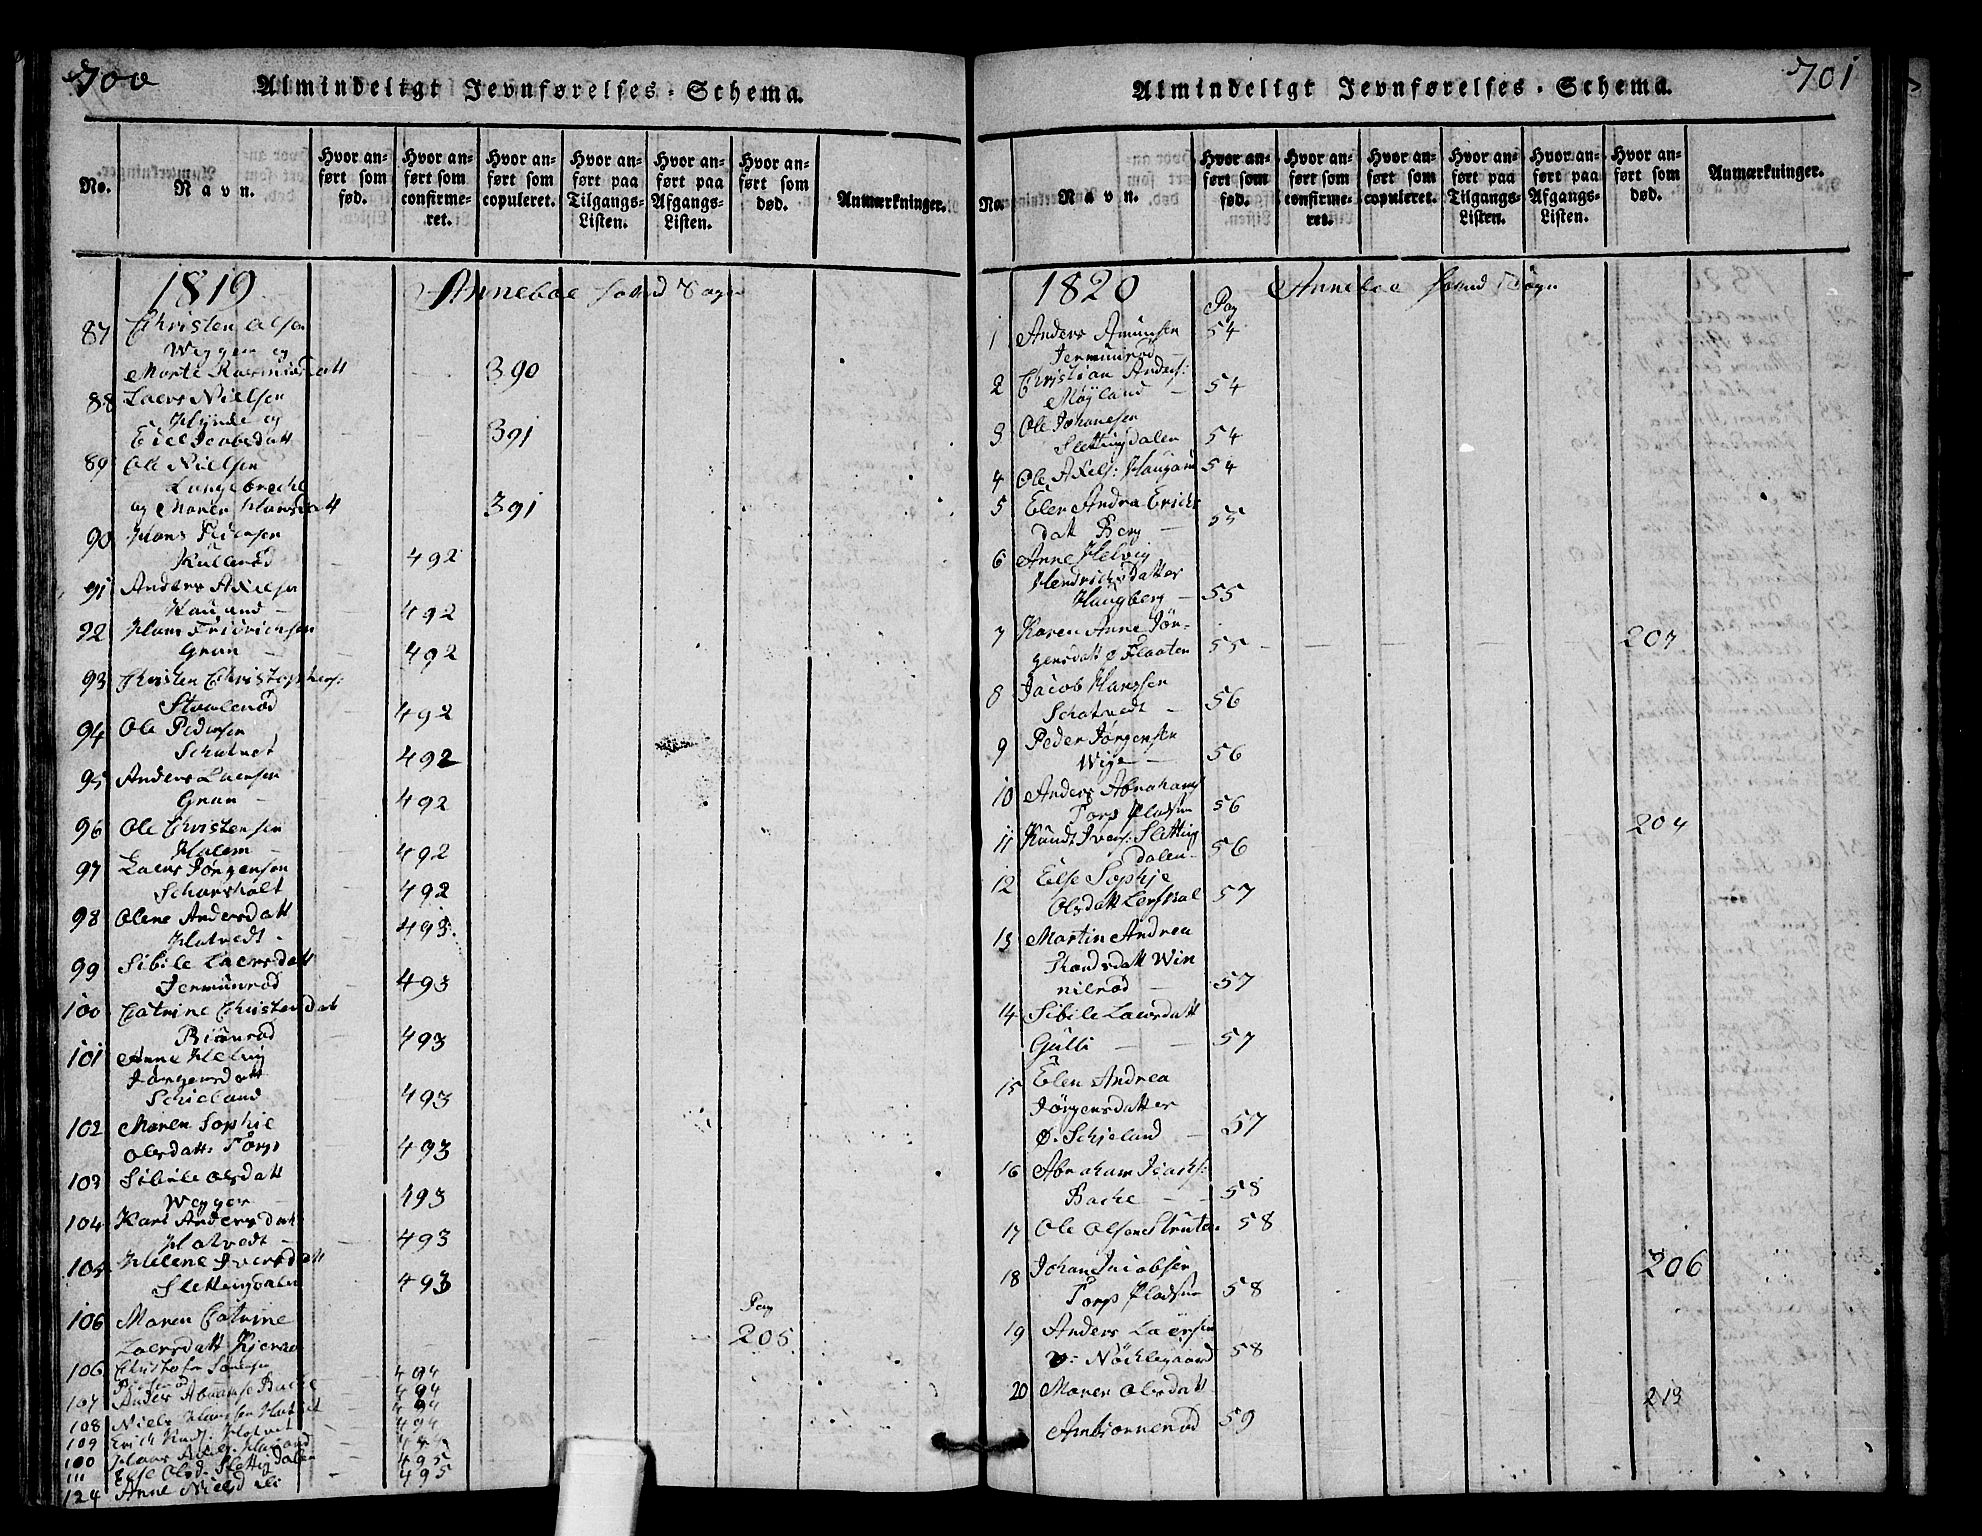 700
Almindeligt Jevnførelses-Schema.
No.
Navn.
Hvor anført som fød.
Hvor anført som confirmeret.
Hvor anført som copuleret.
Hvor anført paa Tilgangs-Listen.
Hvor anført paa Afgangs-Listen.
Hvor anført som død.
Anmærkninger.
1819 Anneboe Sogn
87 Christen Olsen
Weggen og
Marte Rasmusdatt 390
88 Laers Nielsen
og
391
89 Ole Nielsen
Langebreche
og Maren Hansdatt 391
90 Hans Pedersen
Kullerød 492
91 Anders Axelsen
Hauland 492
92 Hans Fridrichsen
Gran 492
93 Christen Christophers:
Staalerød 492
94 Ole Pedersen
Schatvet 492
95 Anders Laersen
Gran 492
96 Ole Christensen
Holem 492
97 Laers Jørgensen
Schorsholt 492
98 Olene Andersdatt
Hotvedt 493
99 Sibile Laersdatt
Jermunrød 493
100 Catrine Christensdat
Biønrød 493
101 Anne Helvig
Jørgensdatt
Schieland 493
102 Maren Sophie
Olsdatt: Torp 493
103 Sibile Olsdatt
Wegger 493
104 Kari Andersdat
Hotvedt 493
104 Helene Iversdatt
Slettingdalen 493
Pag
106 Maren Catrine
Laersdatt Kierao 205
106 Christofer Sørensen
494
107 Anders Abramse Bache 494
108 Niels Hansen Hotvet 494
109 Erich Knuds: Hotvet 494
100 Hans Axels: Hauland
111 Else Olsd: Slettigdalen 495
124 Anne Nielsd 495
701
Almindeligt Jevnførelses-Schema.
No.
Navn.
Hvor anført som fød.
Hvor anført som confirmeret.
Hvor anført som copuleret.
Hvor anført paa Tilgangs-Listen.
Hvor anført paa Afgangs-Listen.
Hvor anført som død.
Anmærkninger.
1820 Anneboe Sogn
Pag
1 Anders Amunsen 54
Jermunrød
2 Christian Anders:
Møyland 54
3 Ole Johanesen
Slettingdalen 54
4 Ole Axels: Haugan 54
5 Elen Andrea Erichs
dat Berg 55
6 Anne Helvig
Hendrichsdatter
Haugberg 55
7 Karen Anne Jør-
gensdatt Ø Flaaten 55 207
8 Jacob Hanssen
Schatvedt 56
9 Peder Jørgensen
Wige 56
10 Anders Abrahams
Torp Pladsen 56 204
11 Knudt Ivers: Sletting
dalen 56
12 Else Sophie
Olsdatt Lerskal 57
13 Martin Andrea
Knudsdatt Win
nilrød 57
14 Sibile Laersdatt
Gulli 57
15 Elen Andrea
Jørgensdatter
Ø. Schjeland 57
16 Abraham Isachs:
Bache 58
17 Ole Olsen Struten 58
18 Johan Jacobsen 206
Torp Pladsen 58
19 Anders Laersen
Nøchlegaard 58
20 Maren Olsdatt 213
Ambiørnerød 59